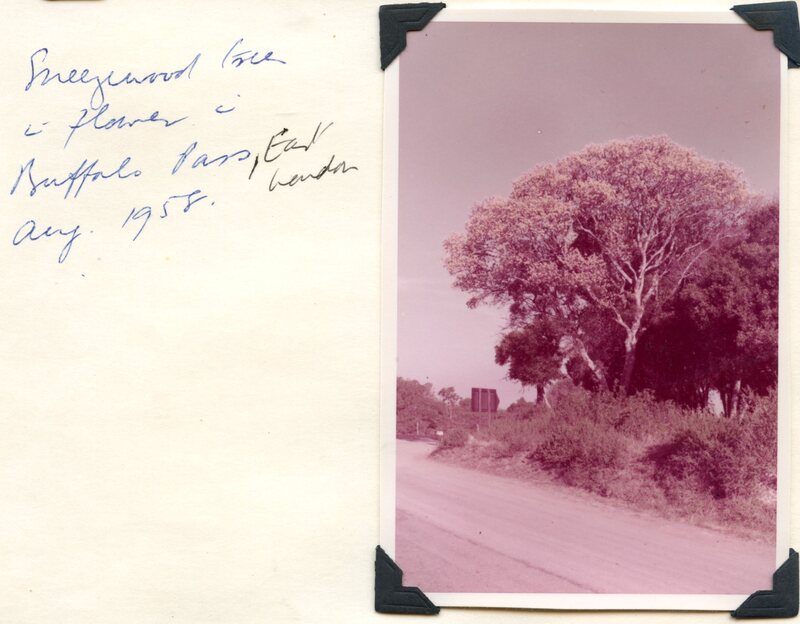 Sneezewood tree
in flower in
Buffalo Pass, East
London
Aug. 1958.